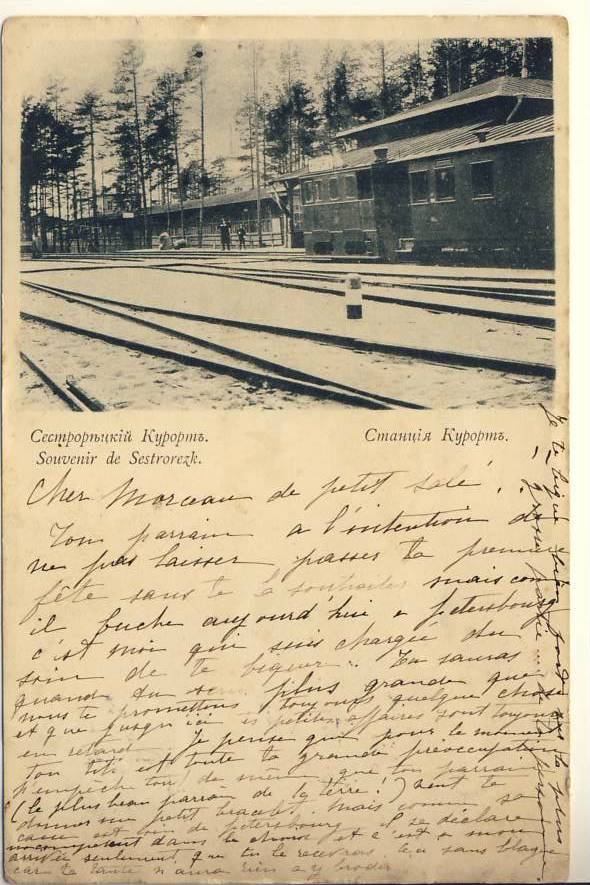 Сестрорѣцкій Курортъ.
Станція Курортъ.
Souvenir de Sestrorezk.
Cher Morceau de petit salé!
Ton parrain a l'intention de
ne pas laisser passer ta première
fête sans te la souhaiter mais comme
il buche aujourd'hui à Petersbourg
c'est moi qui suis chargée du
soin de te biquer. Tu sauras
quand tu seras plus grande que
nous te promettons toujours quelque chose
et que jusqu'ici petites affaires sont toujours
en retard. Je pense que pour le moment
ton et toute ta grande préoccupation
n'empeche tout de même que ton parrain
(le plus beau parrain de la terre!) veut te
donner un petit bracelet. Mais comme sa
est loin de Petersbourg il se déclare
incompetent dans le choix et c'est à mon
arrivée seulement que tu le recevras sans blague
car ta tante n'aura rien à y
Je te bique bien sur la plus
grosse partie de ta personne